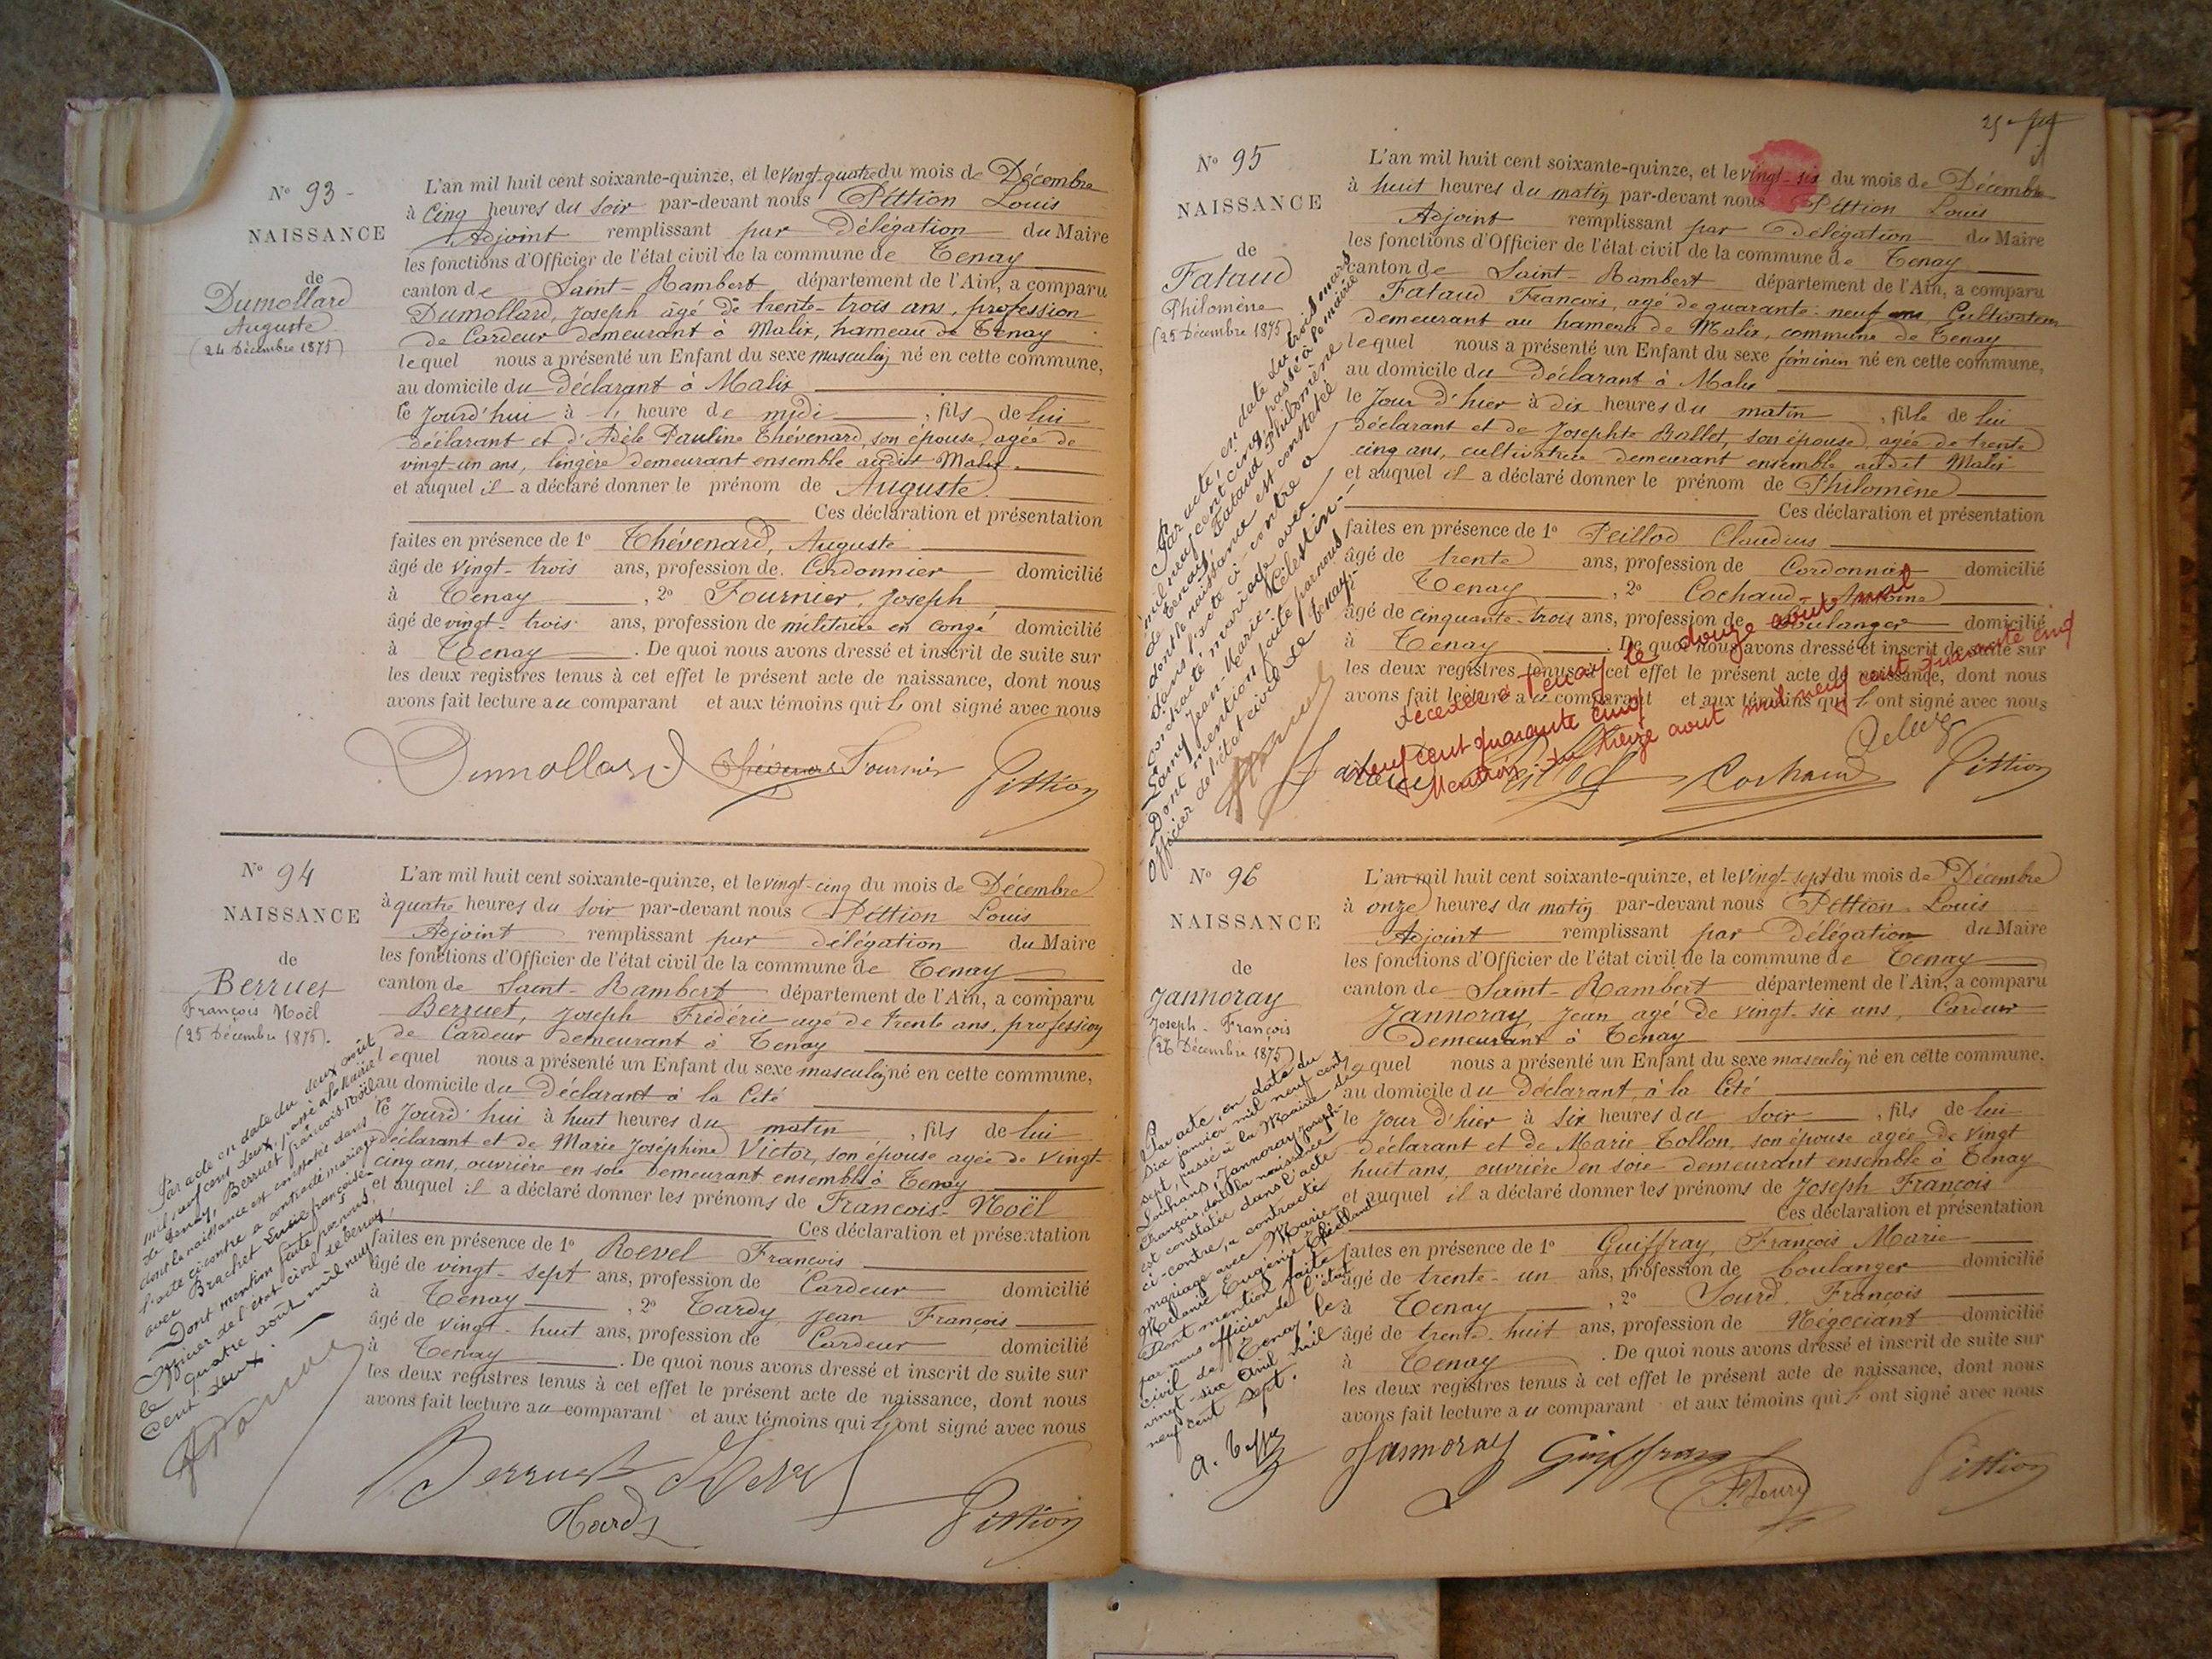 N° 93 -
NAISSANCE
de
Dumollard
Auguste
(24 Décembre 1875)
L'an mil huit cent soixante-quinze, et le vingt-quatre du mois de Décembre
à Cinq heures du soir par-devant nous Pittion Louis
Adjoint remplissant par Délégation du Maire
les fonctions d'Officier de l'état civil de la commune de Tenay
canton de Saint-Rambert département de l'Ain, a comparu
Dumollard, Joseph âgé de trente-trois ans, profession
de Cardeur demeurant à Malix, hameau de Tenay
lequel nous a présenté un Enfant du sexe masculin né en cette commune,
au domicile du Déclarant à Malix
le jourd'hui à heure de midi, fils de lui
déclarant et d'Adèle Pauline Thévenard, son épouse, agée de
vingt-un ans, lingère demeurant ensemble audit Malix.
et auquel il a déclaré donner le prénom de Auguste
Ces déclaration et présentation
faites en présence de 1° Thévenard, Auguste
âgé de vingt-trois ans, profession de Cordonnier domicilié
à Tenay, 2° Fournier, Joseph
âgé de vingt-trois ans, profession de militaire en congé domicilié
à Tenay. De quoi nous avons dressé et inscrit de suite sur
les deux registres tenus à cet effet le présent acte de naissance, dont nous
avons fait lecture au comparant et aux témoins qui ont signé avec nous
Dumollard Thévenard Fournier Pittion
N° 94
NAISSANCE
de
Berruet
François Noël
(25 Décembre 1875).
L'an mil huit cent soixante-quinze, et le vingt-cinq du mois de Décembre
à quatre heures du soir par-devant nous Pittion Louis
Adjoint remplissant par délégation du Maire
les fonctions d'Officier de l'état civil de la commune de Tenay
canton de Saint-Rambert département de l'Ain, a comparu
Berruet, Joseph Frédéric agé de trente ans, profession
de Cardeur demeurant à Tenay
lequel nous a présenté un Enfant du sexe masculin né en cette commune,
au domicile du Déclarant à la Cité
le jourd'hui à huit heures du matin, fils de lui
déclarant et de Marie Joséphine Victoz, son épouse agée de vingt-
cinq ans, ouvrière en soie demeurant ensemble à Tenay
et auquel il a déclaré donner les prénoms de François-Noël
Ces déclaration et présentation
faites en présence de 1° Revel François
âgé de vingt-sept ans, profession de Cardeur domicilié
à Tenay, 2° Tardy, Jean François
âgé de vingt-huit ans, profession de Cardeur domicilié
à Tenay. De quoi nous avons dressé et inscrit de suite sur
les deux registres tenus à cet effet le présent acte de naissance, dont nous
avons fait lecture au comparant et aux témoins qui ont signé avec nous
Par acte en date du deux août
mil neuf cent deux, passé à la Mairie
de Tenay, Berruet François-Noël
dont la naissance est constatée dans
l'acte ci-contre a contracté mariage
avec Brachet Lucie Françoise
Dont mention faite par nous,
Officier de l'état civil de Tenay,
le quatre août mil neuf
cent deux.
Berruet Revel
Tardy Pittion
25
N° 95
NAISSANCE
de
Fataud
Philomène
(25 Décembre 1875)
L'an mil huit cent soixante-quinze, et le vingt-six du mois de Décembre
à huit heures du matin par-devant nous Pittion Louis
Adjoint remplissant par Délégation du Maire
les fonctions d'Officier de l'état civil de la commune de Tenay
canton de Saint-Rambert département de l'Ain, a comparu
Fataud François, agé de quarante-neuf ans, Cultivateur
demeurant au hameau de Malix, commune de Tenay
lequel nous a présenté un Enfant du sexe féminin né en cette commune,
au domicile du Déclarant à Malix
le Jour d'hier à dix heures du matin, fille de lui
déclarant et de Josephte Ballet, son épouse, agée de trente
cinq ans, cultivatrice demeurant ensemble audit Malix
et auquel il a déclaré donner le prénom de Philomène
Ces déclaration et présentation
faites en présence de 1° Peillod Claudius
âgé de trente ans, profession de Cordonnier domicilié
Tenay, 2° Cochaud Antoine
âgé de cinquante-trois ans, profession de Boulanger domicilié
à Tenay. De quoi nous avons dressé et inscrit de suite sur
les deux registres tenus à cet effet le présent acte de naissance, dont nous
avons fait lecture au comparant et aux témoins qui ont signé avec nous
Par acte en date du trois mars
mil neuf cent cinq, passé à la mairie
de Tenay, Fataud Philomène
dont la naissance est constatée
dans l'acte ci-contre a
contracté mariage avec
Lamy Jean-Marie-Célestin.
Dont mention faite par nous
Officier de l'état civil de Tenay.
Décédée à Tenay le douze août mil
neuf cent quarante cinq
Mention du treize août mil neuf cent quarante cinq
Fataud Peillod Cochaud Pittion
N° 96
NAISSANCE
de
Jannoray
Joseph-François
(26 Décembre 1875)
L'an mil huit cent soixante-quinze, et le vingt-sept du mois de Décembre
à onze heures du matin par-devant nous Pittion Louis
Adjoint remplissant par Délégation du Maire
les fonctions d'Officier de l'état civil de la commune de Tenay
canton de Saint-Rambert département de l'Ain, a comparu
Jannoray, Jean agé de vingt-six ans, Cardeur
Demeurant à Tenay
lequel nous a présenté un Enfant du sexe masculin né en cette commune,
au domicile du Déclarant, à la Cité
le Jour d'hier à six heures du soir, fils de lui
déclarant et de Marie Tollon, son épouse agée de vingt
huit ans, ouvrière en soie demeurant ensemble à Tenay
et auquel il a déclaré donner les prénoms de Joseph François
Ces déclaration et présentation
faites en présence de 1° Guiffray, François Marie
âgé de trente-un ans, profession de boulanger domicilié
à Tenay, 2° Sourd, François
âgé de trente-huit ans, profession de Négociant domicilié
à Tenay. De quoi nous avons dressé et inscrit de suite sur
les deux registres tenus à cet effet le présent acte de naissance, dont nous
avons fait lecture au comparant et aux témoins qui ont signé avec nous
Par acte, en date du
six janvier mil neuf cent
sept, passé à la Mairie de
Louhans, Jannoray Joseph-
François, dont la naissance
est constatée dans l'acte
ci-contre, a contracté
mariage avec Marie
Mélanie Eugénie
Dont mention faite
par nous officier de l'état
civil de Tenay, le
vingt-six avril mil
neuf cent sept.
Jannoray Guiffray
F. Sourd Pittion